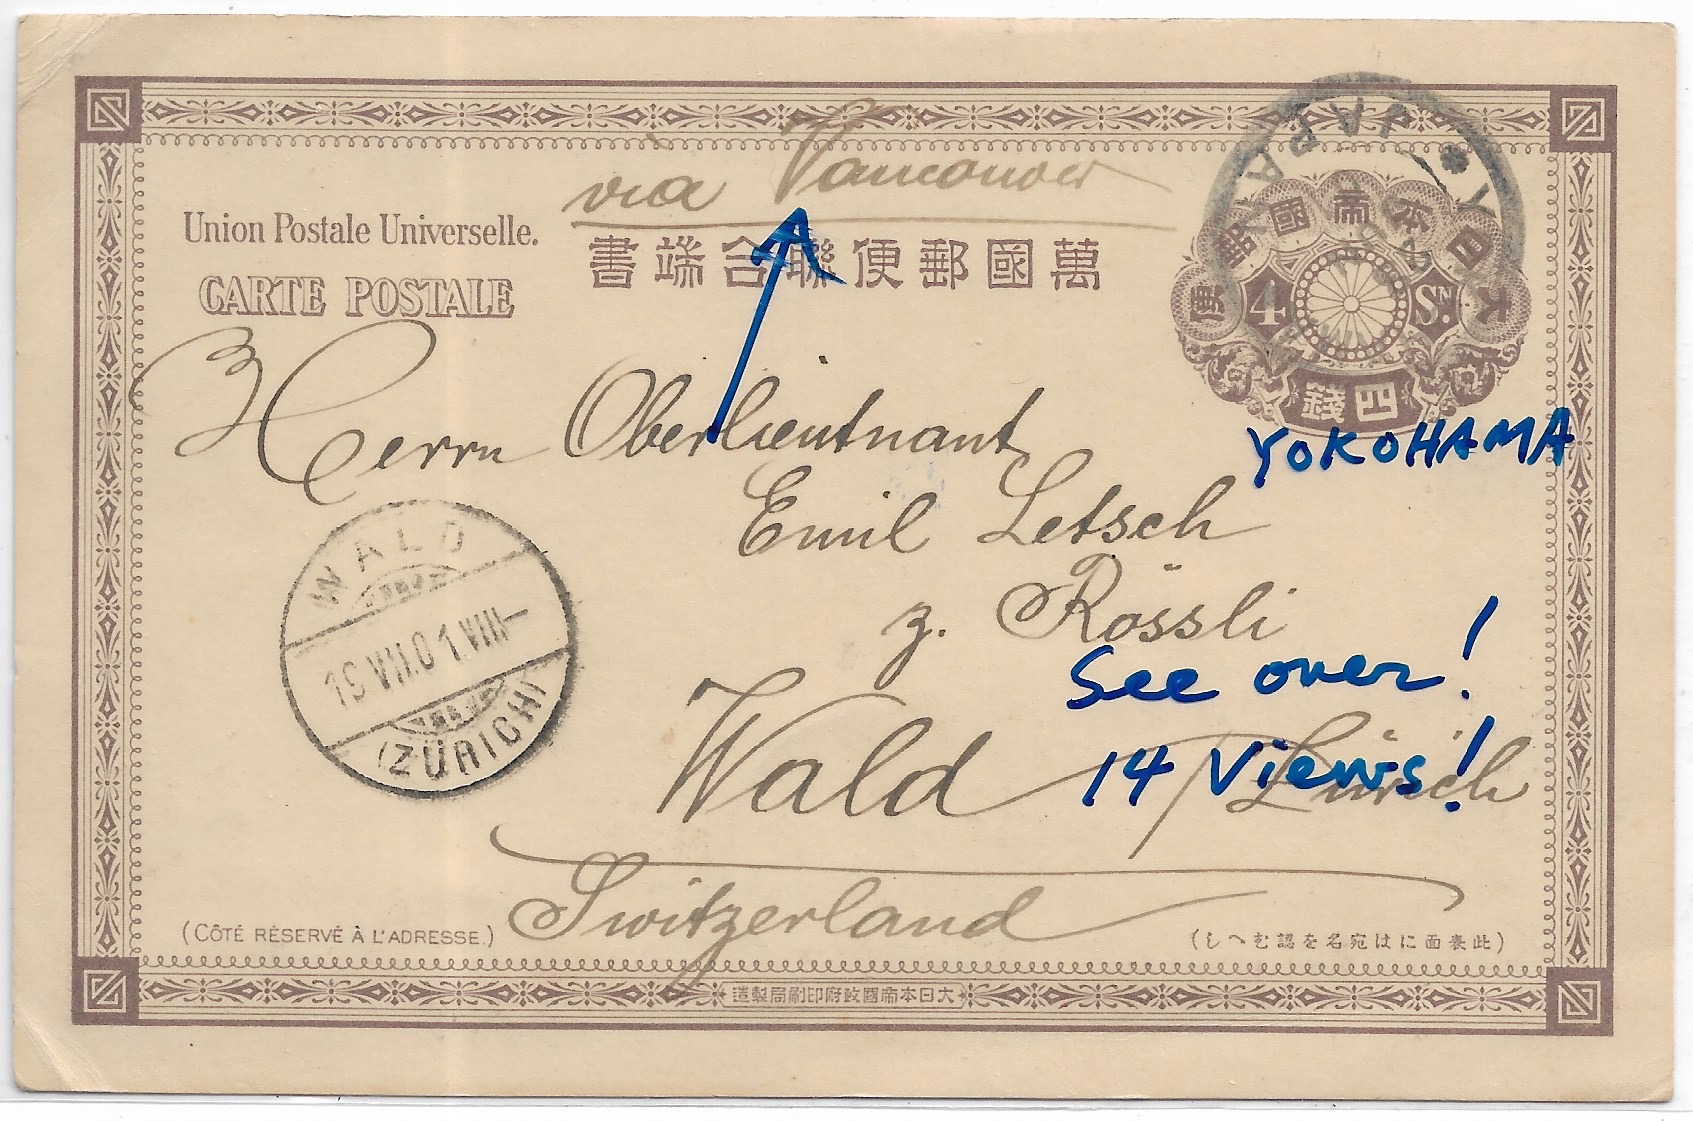 via Vancouver
Union Postale Universelle.
CARTE POSTALE
萬國郵便聯合端書
JAPAN
Y
大日本帝國郵便
4 SN.
四錢
YOKOHAMA
Herrn Oberlieutnant
Emil Letsch
z. Rössli
Wald / Zürich
Switzerland
See over!
14 Views!
WALD
19 VII.01.VIII-
(ZÜRICH)
(CÔTÉ RÉSERVÉ À L'ADRESSE.)
(此表面には宛名を認むへし)
大日本帝國政府印刷局製造